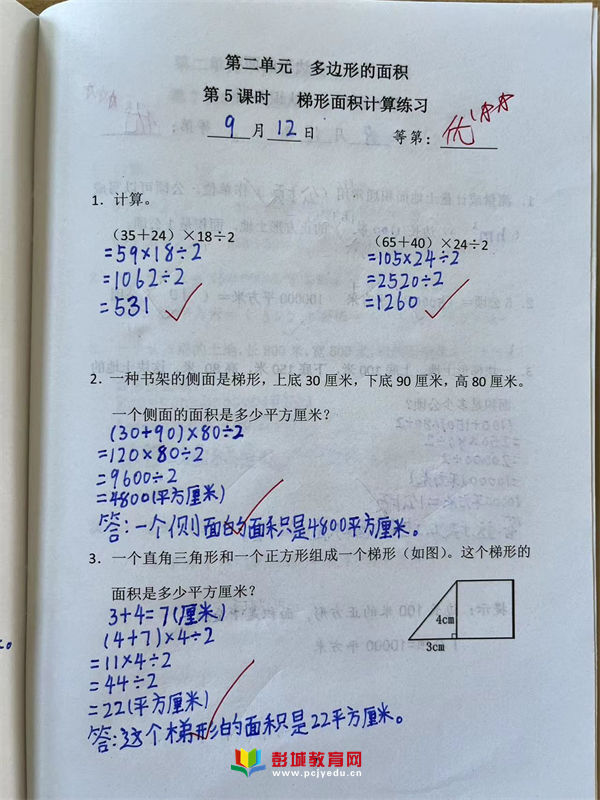 第二单元 多边形的面积
第5课时 梯形面积计算练习
9月12日 等第：优
1. 计算。
（35＋24）×18÷2 （65＋40）×24÷2
=59×18÷2 =105×24÷2
=1062÷2 =2520÷2
=531 =1260
2. 一种书架的侧面是梯形，上底30厘米，下底90厘米，高80厘米。
一个侧面的面积是多少平方厘米？
(30+90)×80÷2
=120×80÷2
=9600÷2
=4800(平方厘米)
答:一个侧面的面积是4800平方厘米。
3. 一个直角三角形和一个正方形组成一个梯形（如图）。这个梯形的
面积是多少平方厘米？
3+4=7(厘米)
(4+7)×4÷2
=11×4÷2
=44÷2
=22(平方厘米)
答:这个梯形的面积是22平方厘米。
4cm
3cm
彭城教育网
www.pcjyedu.cn